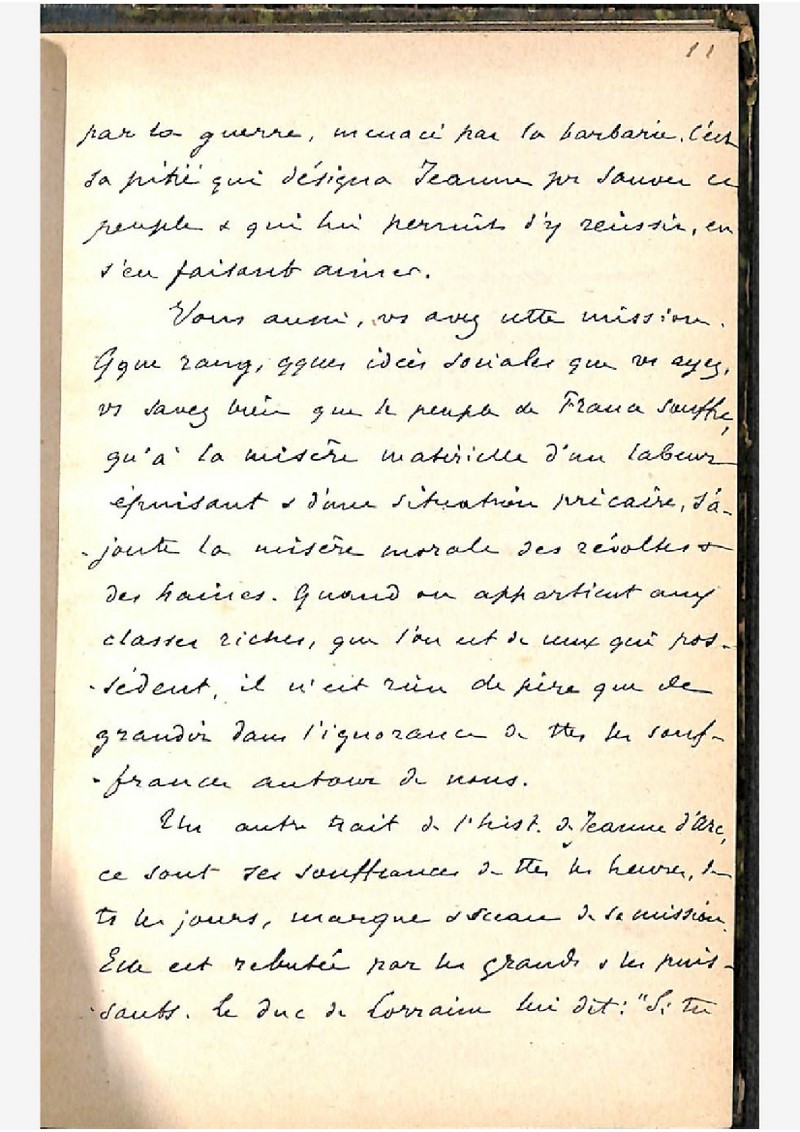 11
par la guerre, menacé par la barbarie. C'est
sa pitié qui désigna Jeanne pr sauver ce
peuple & qui lui permit d'y réussir, en
s'en faisant aimer.
Vous aussi, vs avez cette mission.
Qque rang, qques idées sociales que vs ayez,
vs savez bien que le peuple de France souffre,
qu'à la misère matérielle d'un labeur
épuisant & d'une situation précaire, s'a-
-joute la misère morale des révoltes &
des haines. Quand on appartient aux
classes riches, que l'on est de ceux qui pos-
-sèdent, il n'est rien de pire que de
grandir dans l'ignorance de ttes les souf-
-frances autour de nous.
Un autre trait de l'hist. de Jeanne d'Arc,
ce sont ses souffrances de ttes les heures, de
ts les jours, marque & sceau de sa mission.
Elle est rebutée par les grands & les puis-
-sants. Le duc de Lorraine lui dit: "Si tu